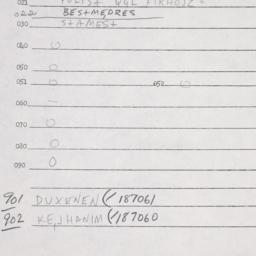 021
022 BESTMEDRES
030 STAMEST
040 0
050 0
051 0 052. 0
060
070 0
080 0
090 0
901 DUXENEN (/187061
902 KEJHANIM (/187060